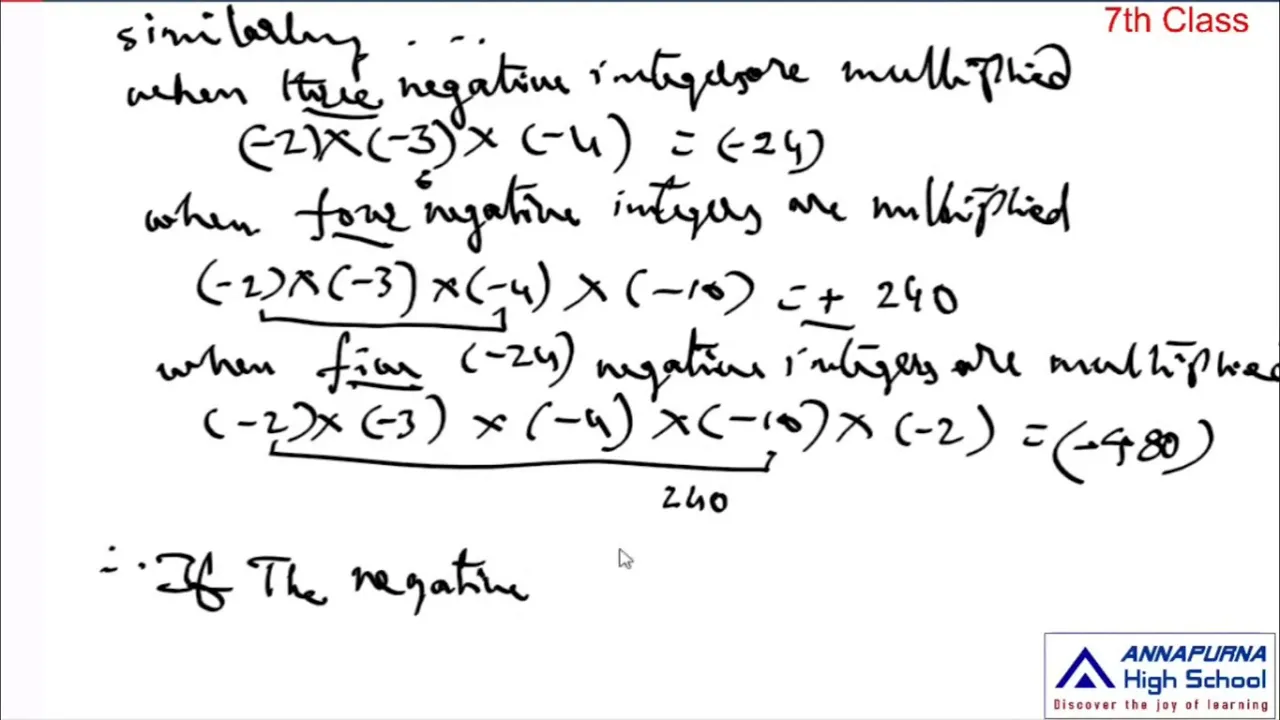 7th Class
similarly ...
when three negative integers are multiplied
(-2)×(-3)×(-4) = (-24)
6
when four negative integers are multiplied
(-2)×(-3)×(-4)×(-10) = + 240
when five (-24) negative integers are multiplied
(-2)×(-3)×(-4)×(-10)×(-2) = (-480)
240
∴ If The negative
ANNAPURNA
High School
Discover the joy of learning